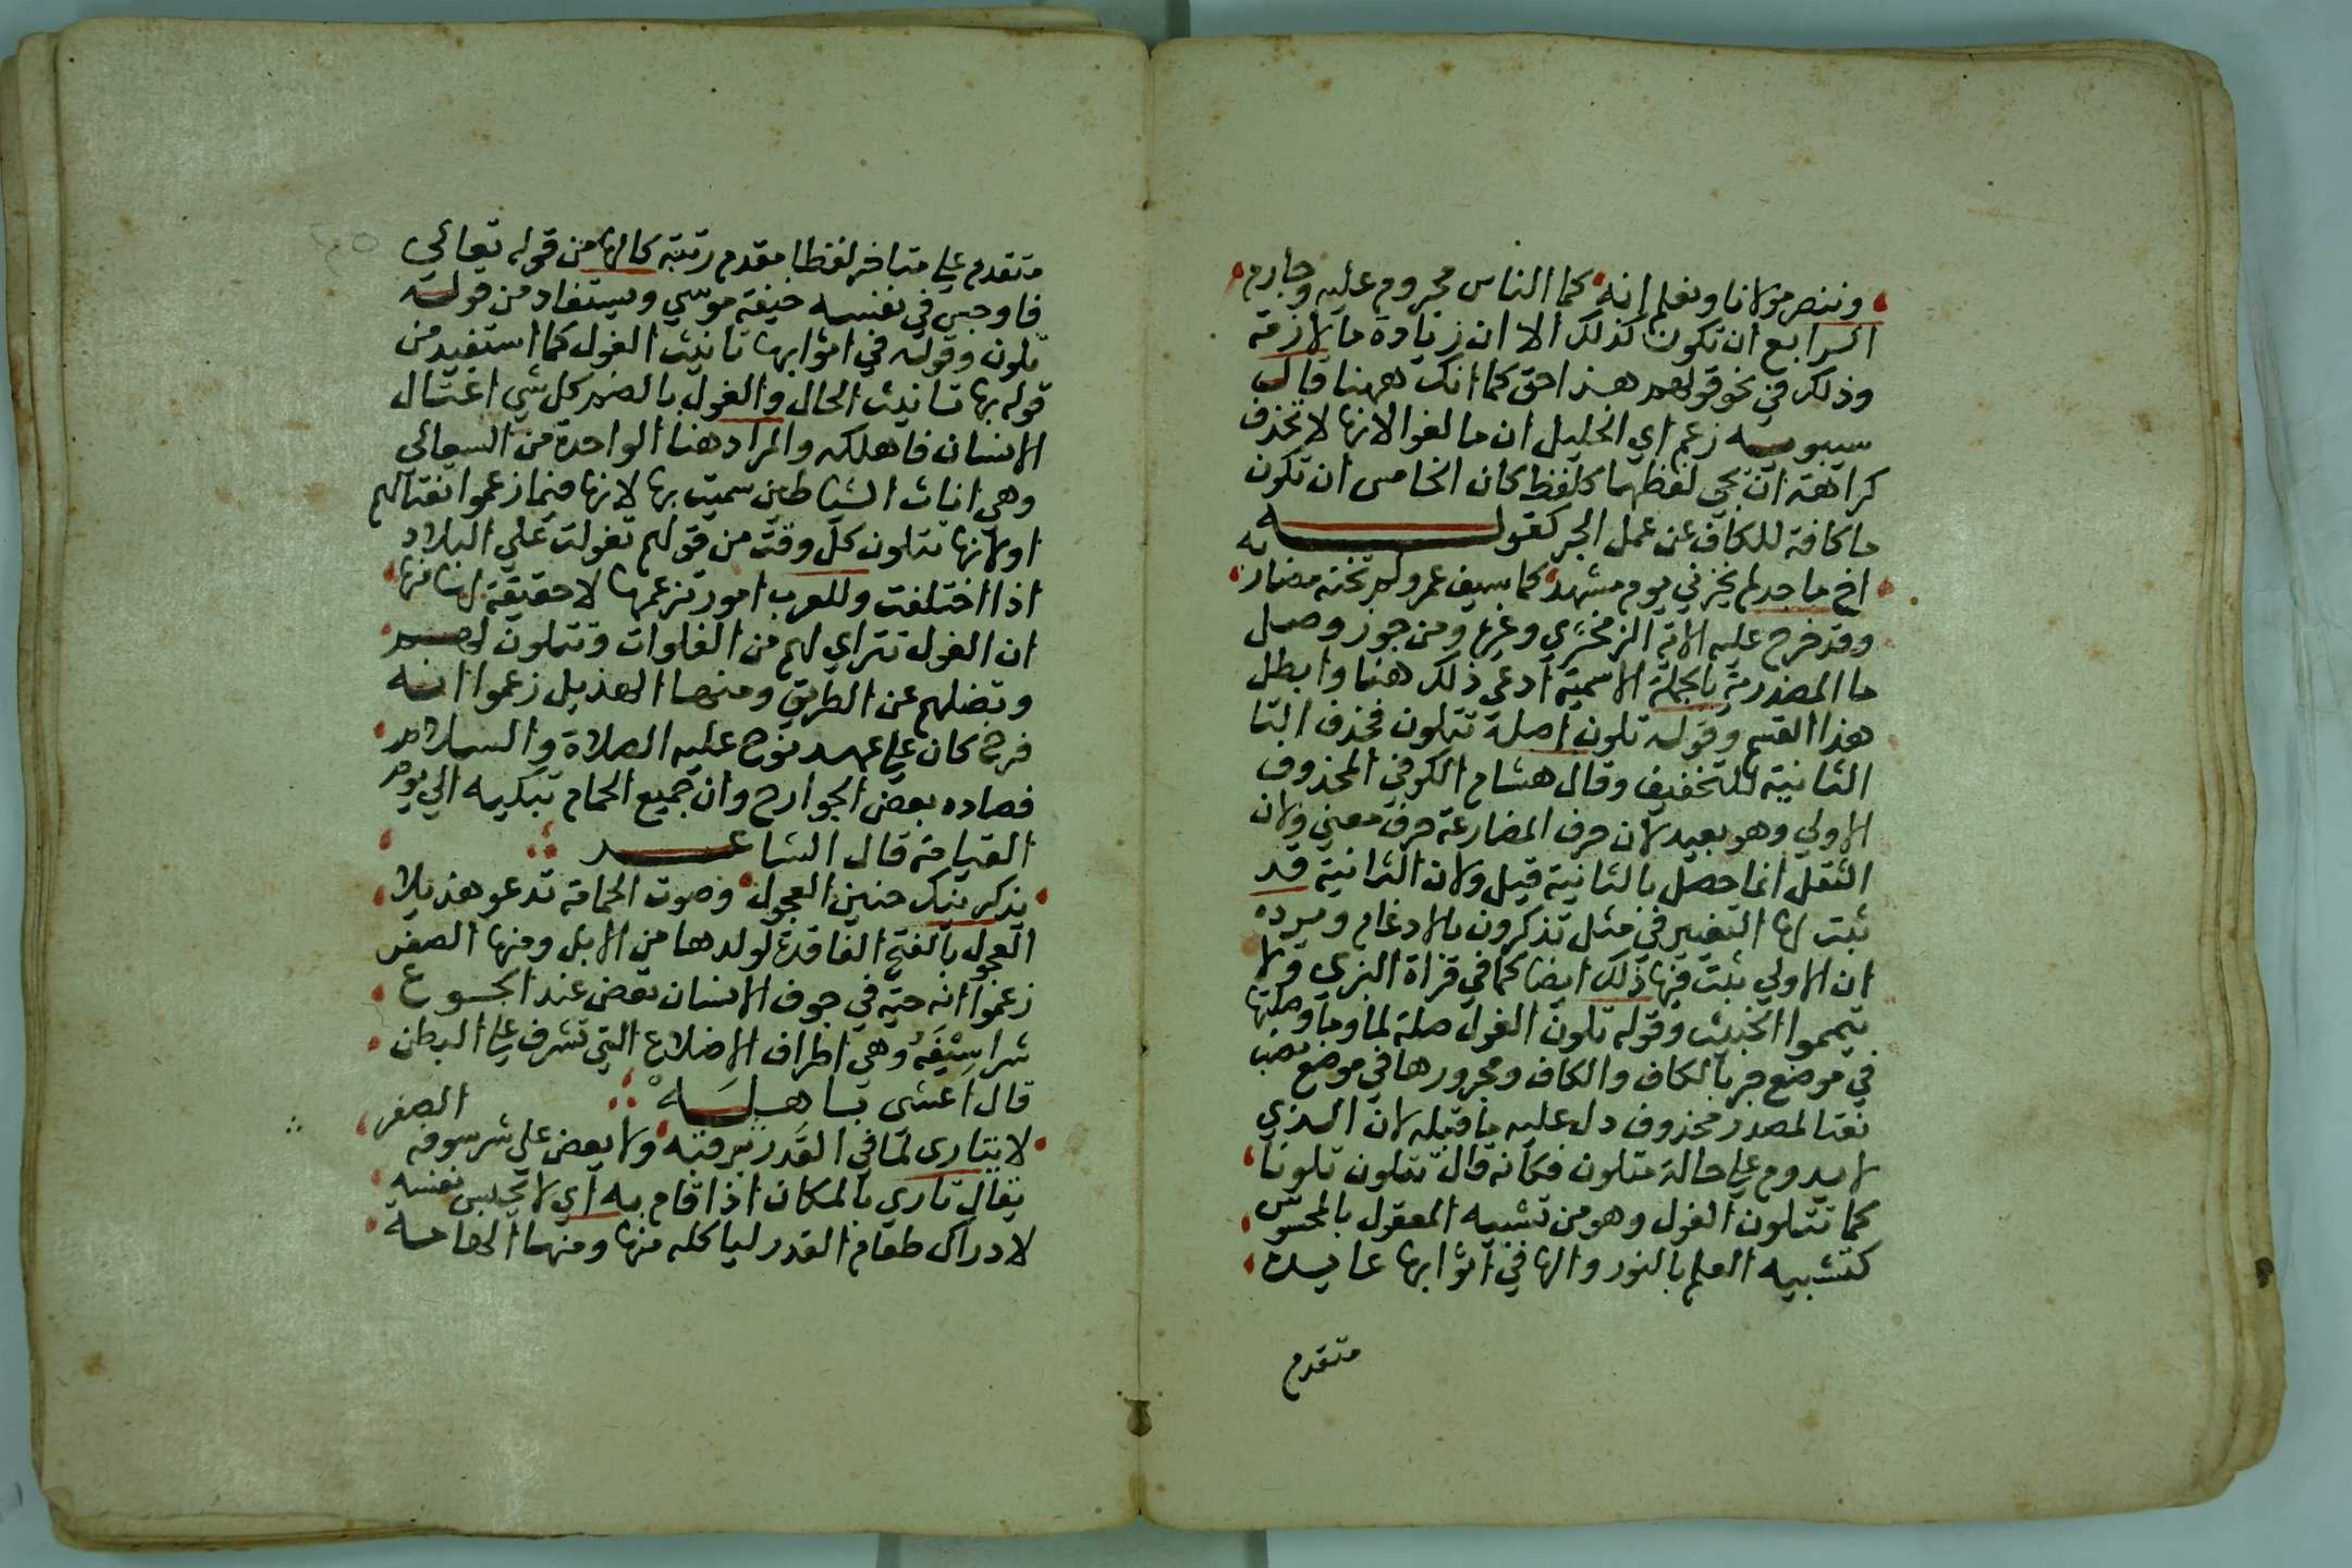 وننصر مولانا ونعلم انه كما الناس مجروم عليه وجارم
الرابع ان تكون كذلك الا ان زيادة ما لازمة
وذلك في نحو قولهم هذا حق كما انك ههنا قال
سيبويه زعم اي الخليل ان ما لغو الا انها لا تحذف
كراهة ان يجي لفظهما كلفظ كان الخامس ان تكون
ما كافة للكاف عن عمل الجر كقوله
اخ ماجد لم يخزني يوم مشهد كما سيف عمرو لم تخنه مضاربه
وقد خرج عليه الاية الزمخشري وغيره ومن جوز وصل
ما المصدرية بالجملة الاسمية ادعي ذلك هنا وابطل
هذا القسم وقوله تلون اصله تتلون فحذف التا
الثانية للتخفيف وقال هشام الكوفي المحذوف
الاولي وهو بعيد لان حرف المضارعة حرف معني ولان
الثقل انما حصل بالثانية قيل ولان الثانية قد
ثبت لها التغيير في مثل تذكرون بالادغام ويرده
ان الاولي ثبت فيها ذلك ايضا كما في قراة البزي ولا
تيمموا الخبيث وقوله تلون الغول صلة لما وما وصلتها
في موضع جر بالكاف والكاف ومجرورها في موضع نصب
نعتا لمصدر محذوف دل عليه ما قبله لان الذي
لا يدوم علي حالة متلون فكانه قال تتلون تلونا
كما تتلون الغول وهو من تشبيه المعقول بالمحسوس
كتشبيه العلم بالنور والها في اثوابها عايدة
متقدم
متقدم علي متاخر لفظا مقدم رتبة كالها من قوله تعالي
فاوجس في نفسه خيفة موسي ويستفاد من قوله
تلون وقوله في اثوابها تانيث الغول كما استفيد من
قوله بها تانيث الحال والغول بالضم كل شي اغتال
الانسان فاهلكه والمراد هنا الواحدة من السعالي
وهي اناث الشياطين سميت بها لانها فيما زعموا تغتالهم
او لانها تتلون كل وقت من قولهم تغولت علي البلاد
اذا اختلفت وللعرب امور تزعمها لا حقيقة لها منها
ان الغول تتراي لهم من الفلوات وتتلون لهم
وتضلهم عن الطريق ومنها الهذيل زعموا انه
فرخ كان علي عهد نوح عليه الصلاة والسلام
فصاده بعض الجوارح وان جميع الحمام تبكيه الي يوم
القيامة قال الشاعر
يذكرنيك حنين العجول وصوت الحمامة تدعو هذيلا
العجول بالفتح الفاقدة لولدها من الابل ومنها الصفر
زعموا انه حية في جوف الانسان تعض عند الجوع
شراسيفه وهي اطراف الاضلاع التي تشرف علي البطن
قال اعشى باهله
لا يتارى لما في القدر يرقبه ولا يعض على شرسوفه الصفر
يقال تاري بالمكان اذا قام به اي لا يحبس نفسه
لادراك طعام القدر لياكله منها ومنها الهامه